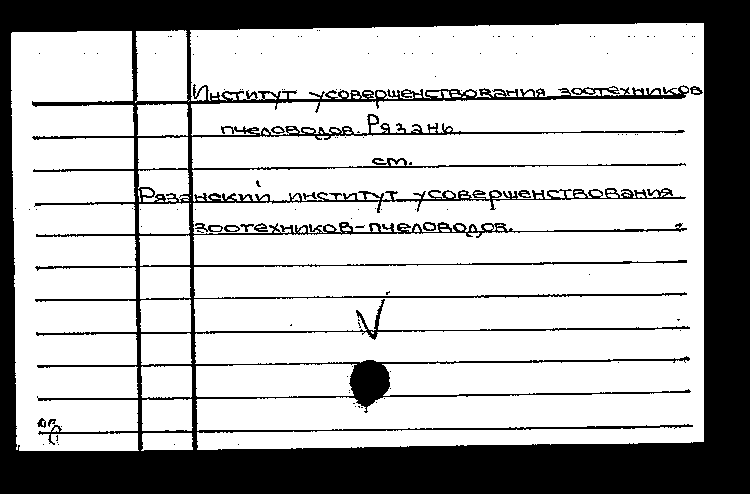 Институт усовершенствования зоотехников
пчеловодов. Рязань.
см.
Рязанский институт усовершенствования
зоотехников-пчеловодов.